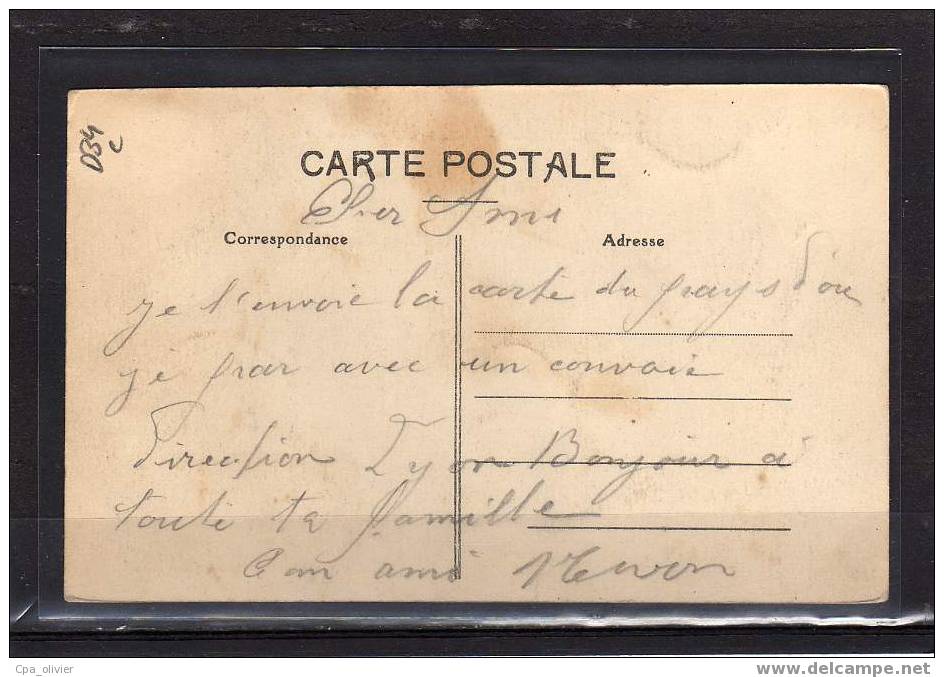 D34
c
CARTE POSTALE
Cher Ami
Correspondance
Adresse
je t'envoie la carte du pays d'ou
je par avec un convoie
Direction Lyon Bonjour a
toute ta famille
ami
Cpa_olivier
www.delcampe.net